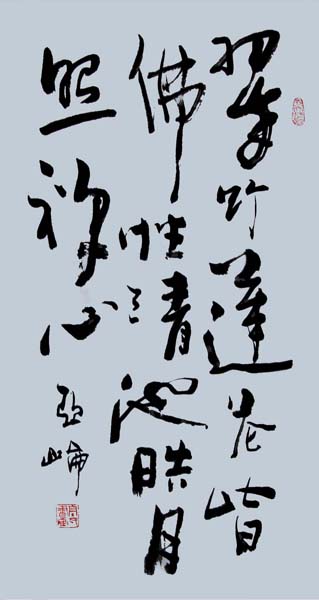 翠竹蓮花皆
佛性清池皓月
照禅心
亞